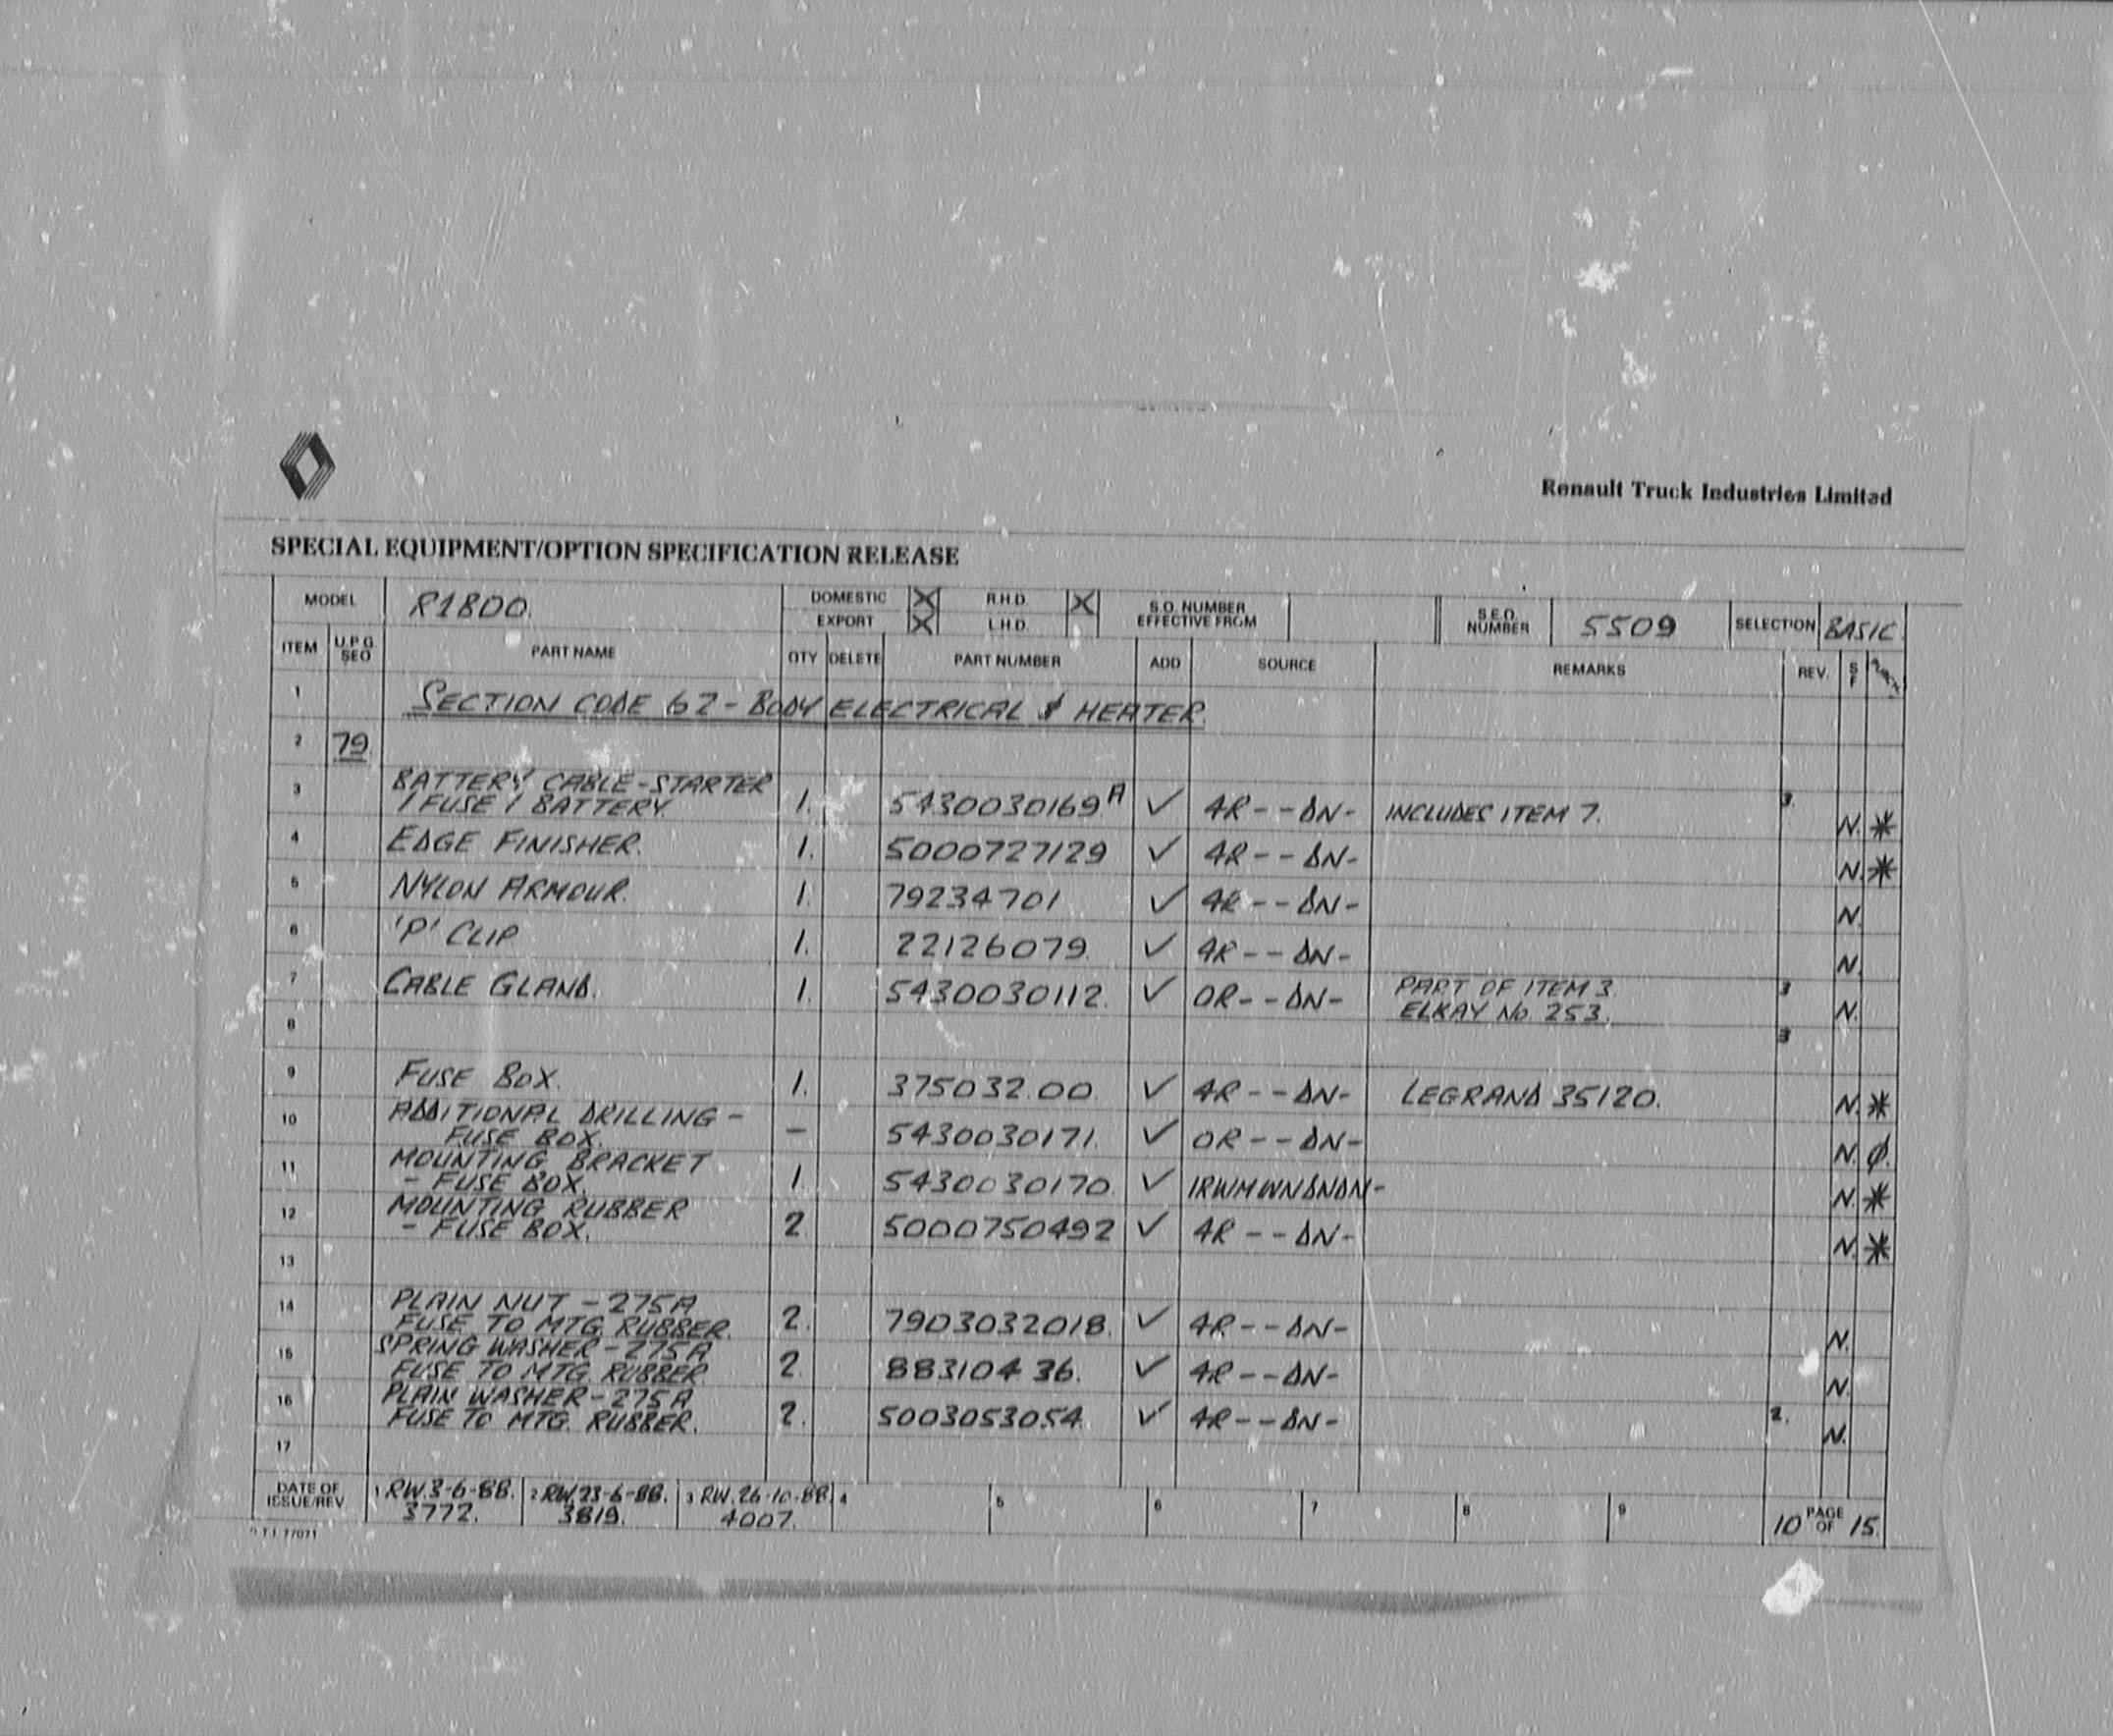 Renault Truck Industries Limited
SPECIAL EQUIPMENT/OPTION SPECIFICATION RELEASE
MODEL R1800. DOMESTIC X R.H.D. X S.O. NUMBER EFFECTIVE FROM S.E.O. NUMBER 5509 SELECTION BASIC.
EXPORT X L.H.D.
ITEM U.P.G. SEO PART NAME QTY DELETE PART NUMBER ADD SOURCE REMARKS REV. S F
1 SECTION CODE 62 - BODY ELECTRICAL & HEATER.
2 79
3 BATTERY CABLE-STARTER
/ FUSE / BATTERY. 1. 5430030169 A ✓ 4R--DN- INCLUDES ITEM 7. 3. N. *
4 EDGE FINISHER. 1. 5000727129 ✓ 4R--DN- N. *
5 NYLON ARMOUR. 1. 79234701 ✓ 4R--DN- N.
6 'P' CLIP 1. 22126079. ✓ 4R--DN- N.
7 CABLE GLAND. 1. 5430030112. ✓ OR--DN- PART OF ITEM 3. 3 N.
ELKAY No 253.
8 3
9 FUSE BOX. 1. 375032.00. ✓ 4R--DN- LEGRAND 35120. N. *
10 ADDITIONAL DRILLING -
FUSE BOX. - 5430030171. ✓ OR--DN- N. Ø.
11 MOUNTING BRACKET
- FUSE BOX. 1. 5430030170. ✓ 1RWMWNDNDN- N. *
12 MOUNTING RUBBER
- FUSE BOX. 2 5000750492 ✓ 4R--DN- N. *
13
14 PLAIN NUT - 275A
FUSE TO MTG. RUBBER. 2. 7903032018. ✓ 4R--DN- N.
15 SPRING WASHER - 275A
FUSE TO MTG. RUBBER 2. 88310436. ✓ 4R--DN- N.
16 PLAIN WASHER - 275A
FUSE TO MTG. RUBBER. 2. 5003053054. ✓ 4R--DN- 2. N.
17
DATE OF ISSUE/REV 1 RW.3-6-88. 2 RW.23-6-88. 3 RW.26-10-88. 4 5 6 7 8 9 10 PAGE OF 15.
3772. 3819. 4007.